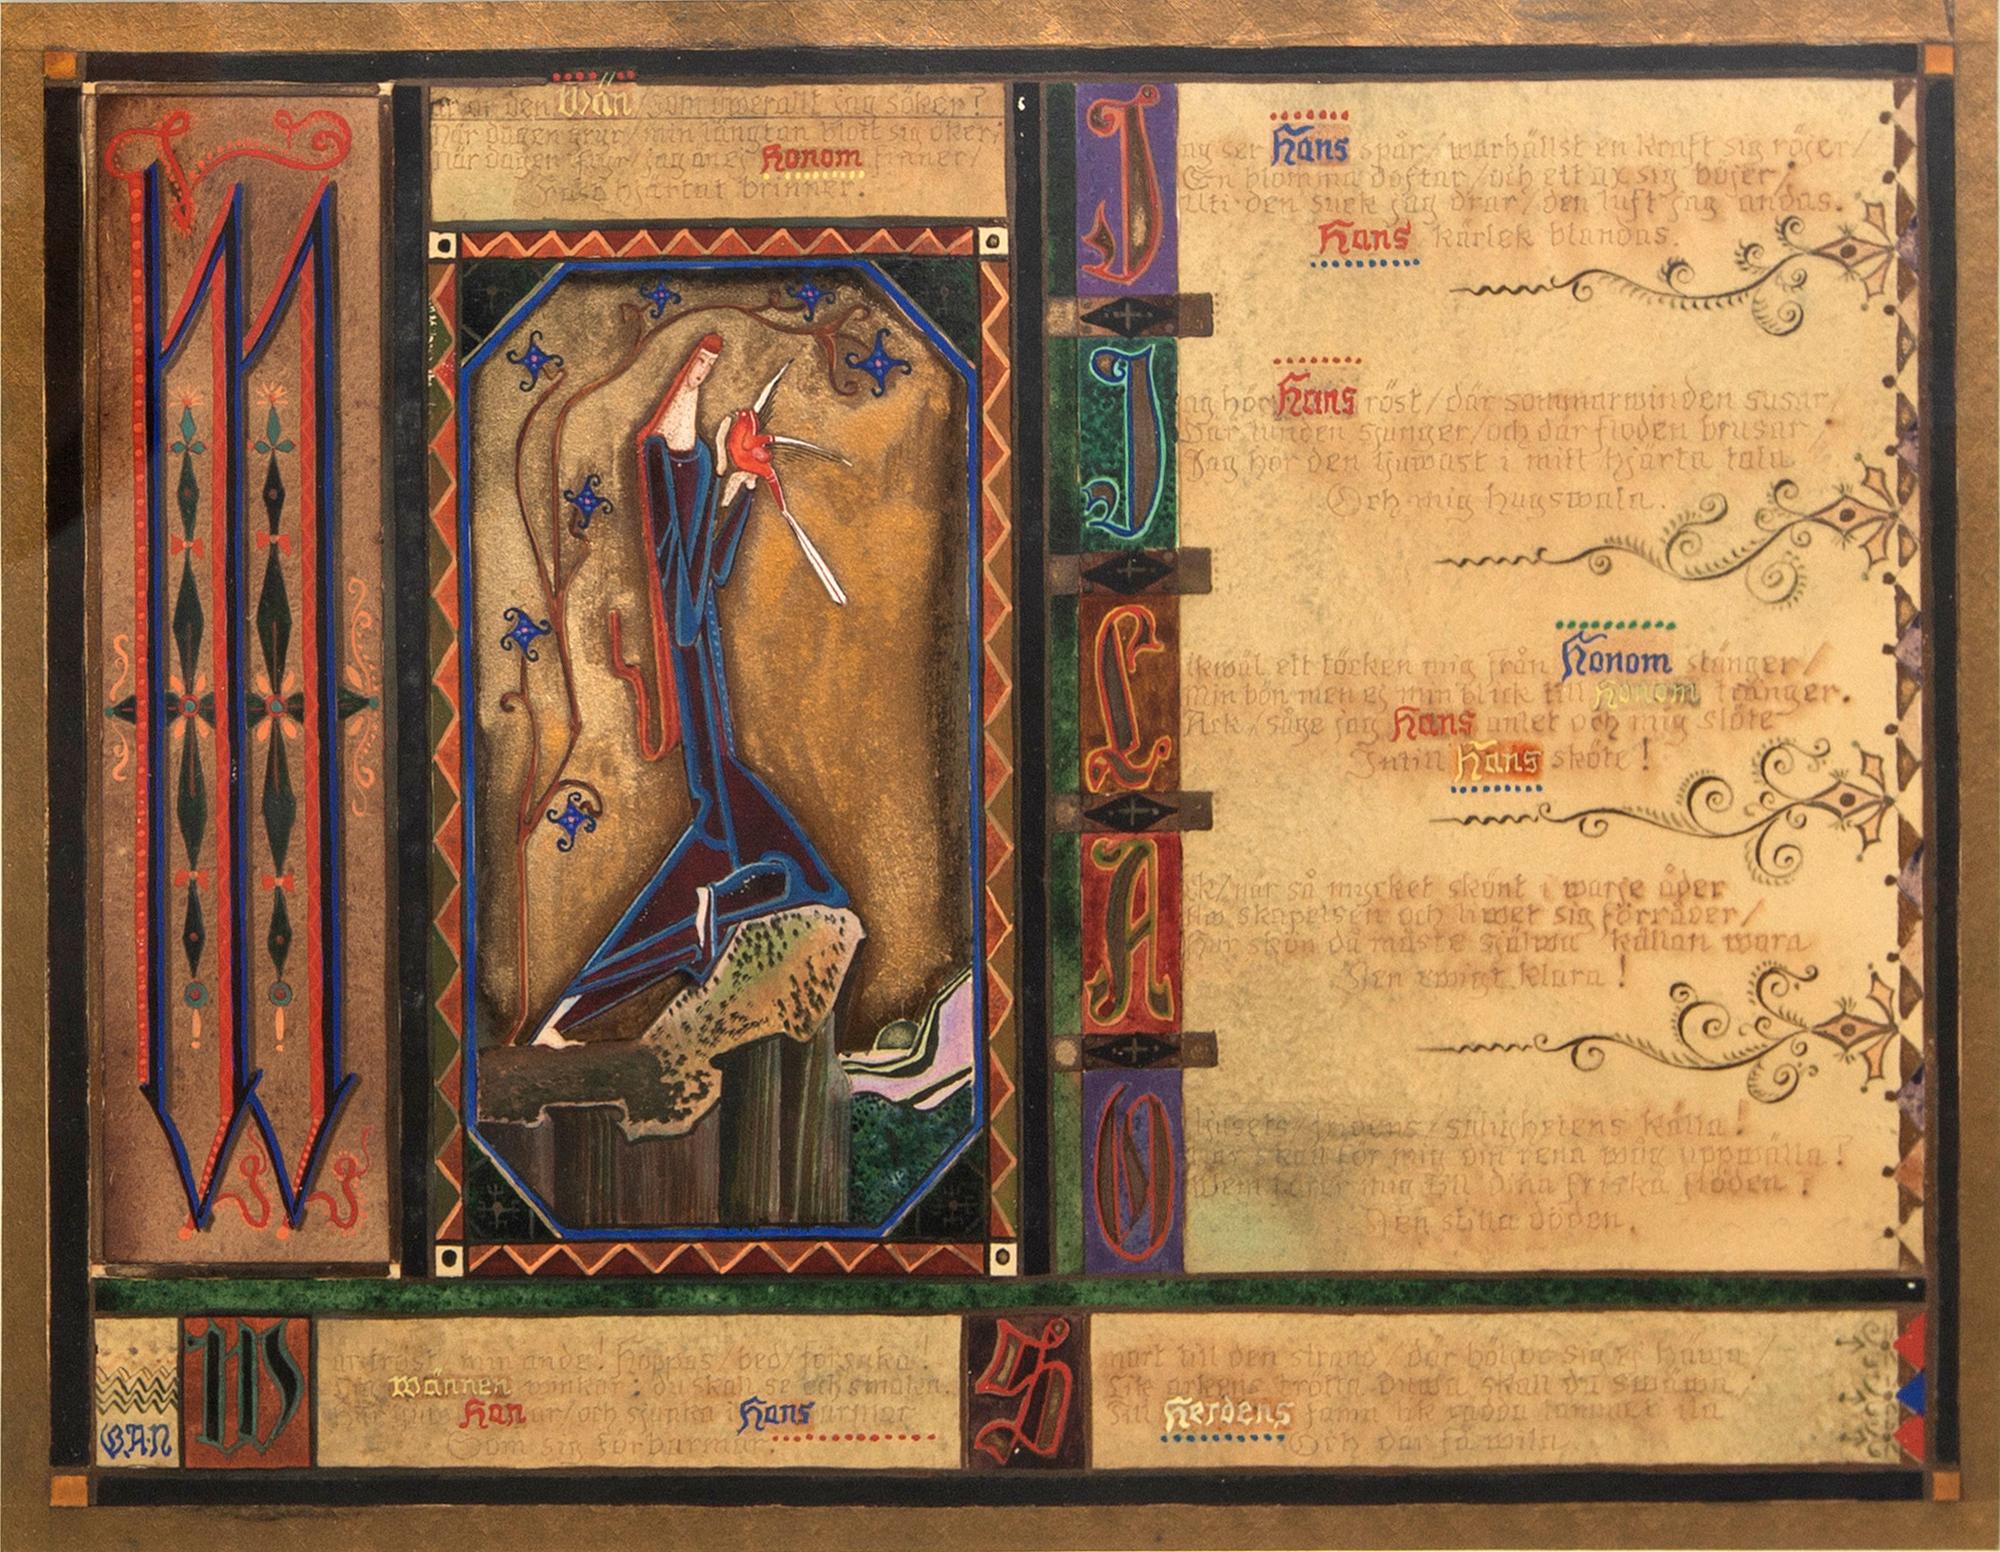 War är den Wän/som öwerallt jag söker?
När dagen gryr/min längtan blott sig öker;
När dagen flyr/jag än ej Honom finner/
Fast hjärtat brinner.
Jag ser Hans spår/warhällst en kraft sig röjer/
En blomma doftar/och ett ax sig böjer;
Uti den suck jag drar/den luft jag andas.
Hans kärlek blandas.
Jag hör Hans röst/där sommarwinden susar/
Där lunden sjunger/och där floden brusar;
Jag hör den ljuwast i mitt hjärta tala
Och mig hugswala.
Likwäl ett töcken mig från Honom stänger/
Min bön men ej min blick till Honom tränger.
Ack/såge jag Hans anlet och mig slöte
Intill Hans sköte!
Ack/när så mycket skönt i warje åder
Aw skapelsen och liwet sig förråder/
Hur skön då måste själwa källan wara
Den ewigt klara!
O ljusets/fridens/salighetens källa!
När skall för mig din rena wåg uppwälla?
Wem förer mig till dina friska flöden?
Den stilla döden.
War tröst, min ande! Hoppas/bed/försaka!
Dig Wännen winkar: du skall se och smaka.
Hur ljuw Han är/och sjunka i Hans armar
Som sig förbarmar.
Snart till den strand/där böljor sig ej häwa/
Lik arkens trötta duwa skall du swäwa/
Till Herdens famn lik lammet ila
Och där få wila.
GAN